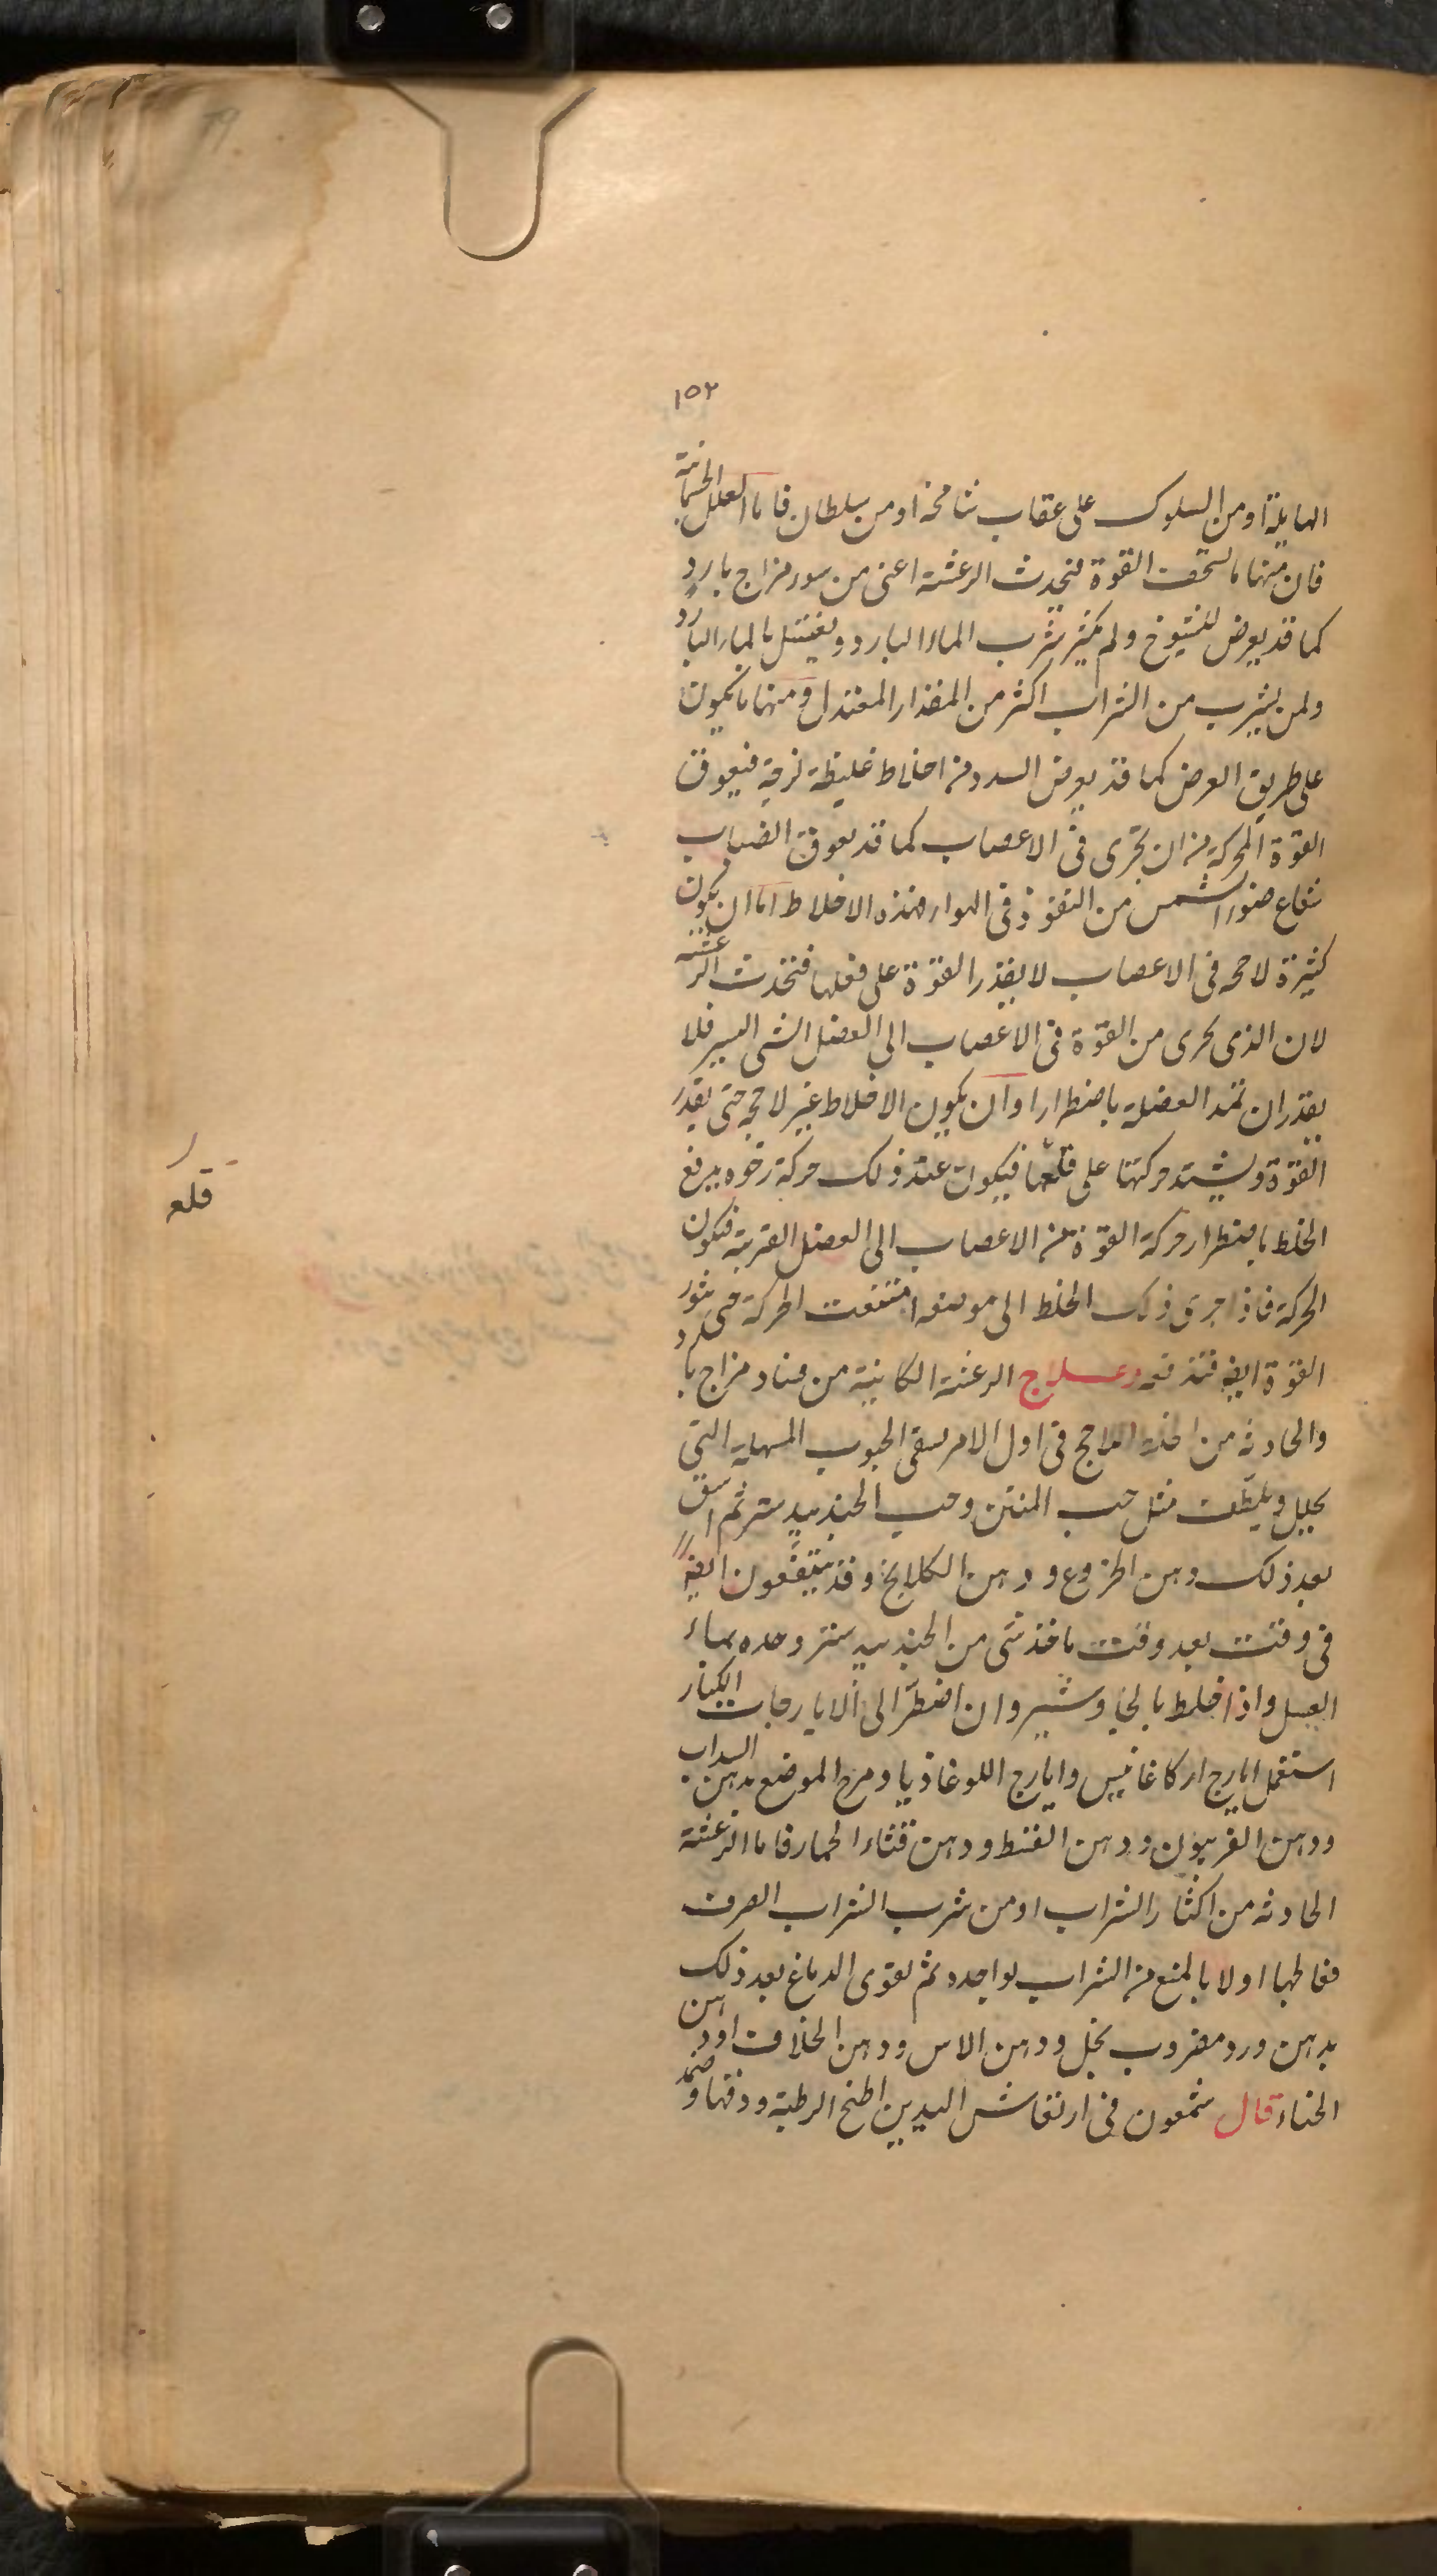 ١٥٢
الهايلة او من السلوك على عقاب شامخة او من سلطان فاما العلل الجسمانية
فان منها ما لسخف القوة فيحدث الرعشة اعنى من سوء مزاج باردٍ
كما قد يعرض للشيوخ ولم يكثر شرب الماء البارد ويغتسل بالماء البارد
ولمن يشرب من الشراب اكثر من المقدار المعتدل ومنها ما يكون
على طريق العرض كما قد يعرض السدد من اخلاط غليظة لزجة فيعوق
القوة المحركة من ان تجرى فى الاعصاب كما قد يعوق الضباب
شعاع ضوء الشمس من النفوذ فى الهواء وهذه الاخلاط اما ان يكون
كثيرة لاحجه فى الاعصاب لا يقدر القوة على فعلها فتحدث الرعشة
لان الذى يجرى من القوة فى الاعصاب الى العضل الشى اليسير فلا
يقدر ان تمد العضلة باضطرار او ان يكون الاخلاط غير لاحجه حتى يقدر
القوة ويشتد حركتها على قلعها فيكون عند ذلك حركة رخوه يدفع
الخلط باضطرار حركة القوة من الاعصاب الى العضل القريبة فيكون
الحركة فاذا جرى ذلك الخلط الى موضعه امتنعت الحركة حتى يثور
القوة ايضا فتدفعه وعلاج الرعشة الكاينة من فساد مزاج بارد
والحادثه من اخلاط لاحجه فى اول الامر يسقى الحبوب المسهلة التى
يحلل ويلطف مثل حب المنتن وحب الجندبيدستر ثم اسق
بعد ذلك دهن الخروع ودهن الكلكلانج وقد ينتفعون ايضا
فى وقت بعد وقت باخذ شى من الجندبيدستر وحده بماء
العسل واذا خلط بالجاوشير وان اضطر الى الايارجات الكبار
استعمل ايارج اركاغانيس وايارج اللوغاذيا ومرخ الموضع بدهن السداب
ودهن الفربيون ودهن القسط ودهن قثاء الحمار فاما الرعشة
الحادثه من اكثار الشراب او من شرب الشراب الصرف
فعالجها اولا بالمنع من الشراب لواجده ثم تقوى الدماغ بعد ذلك
بدهن ورد مضروب بخل ودهن الاس ودهن الخلاف او دهن
الحناء قال شمعون فى ارتعاش اليدين اطبخ الرطبة ودقها وضمد
قلعه